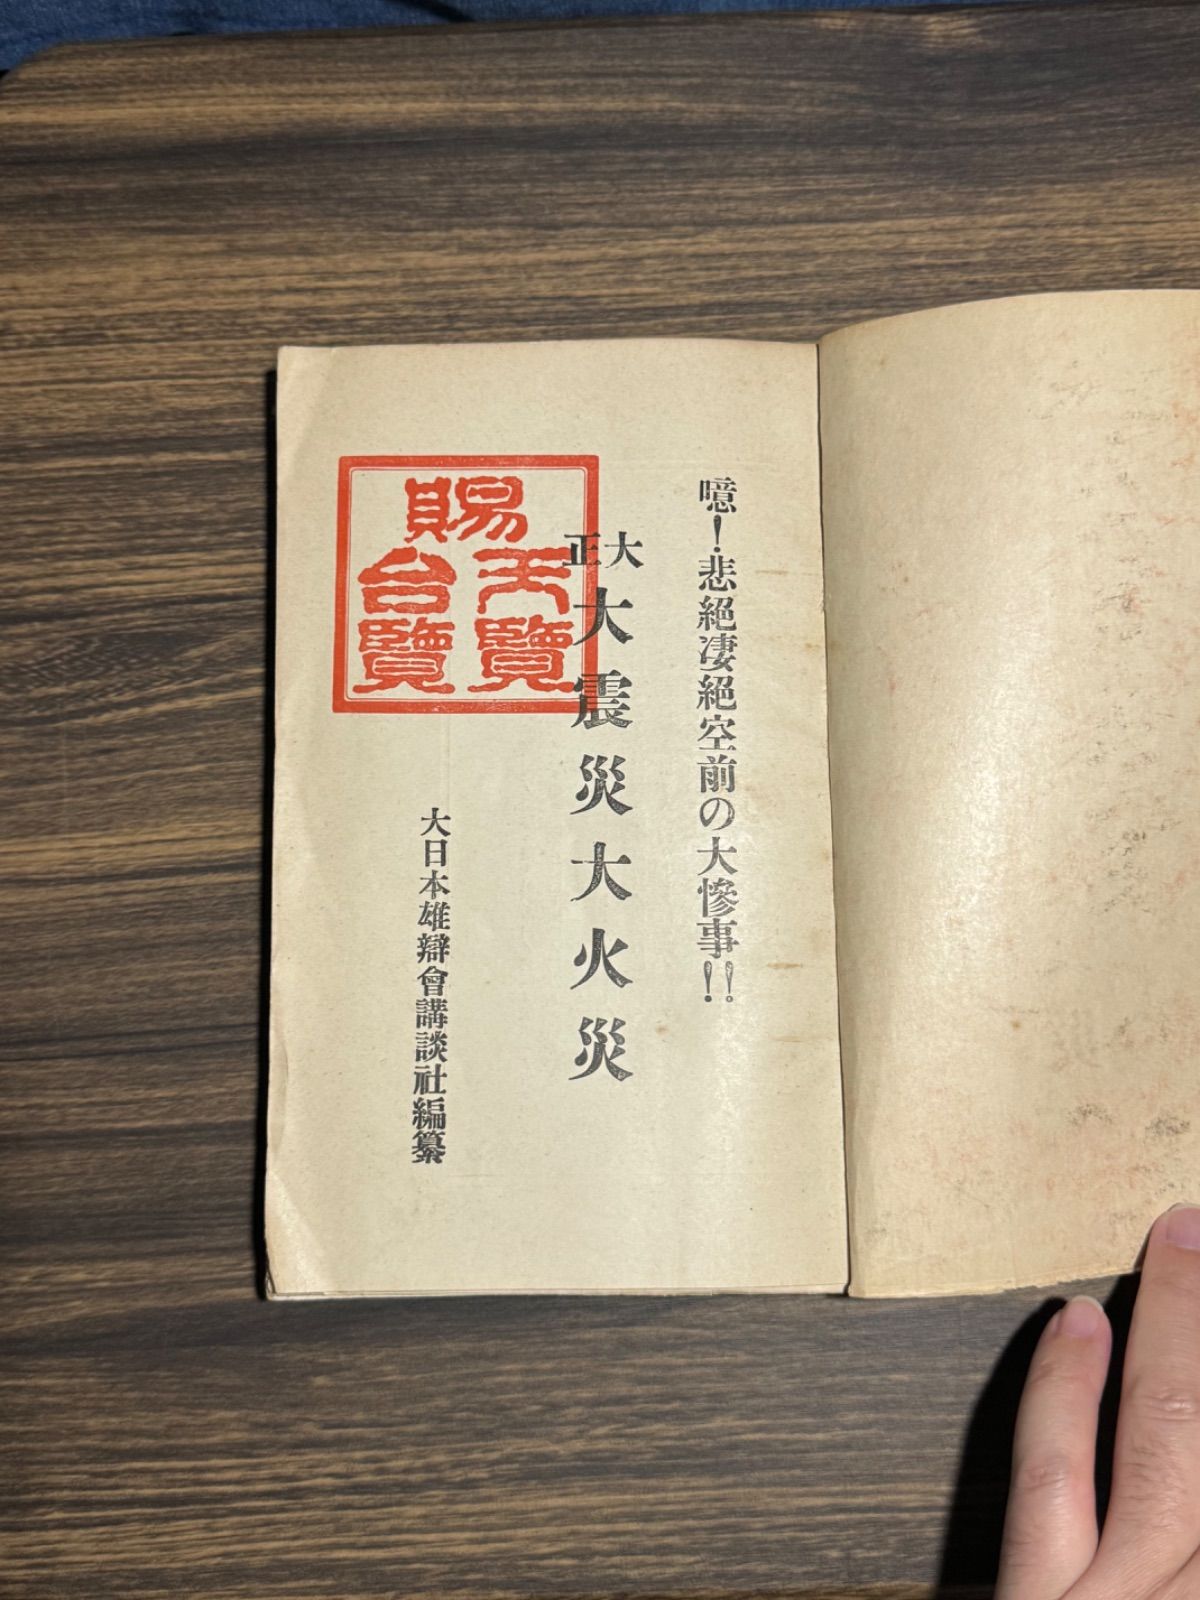 噫！悲絕凄絕空前の大慘事!!
大正
大震災大火災
大日本雄辯會講談社編纂
賜
天覽
台覽